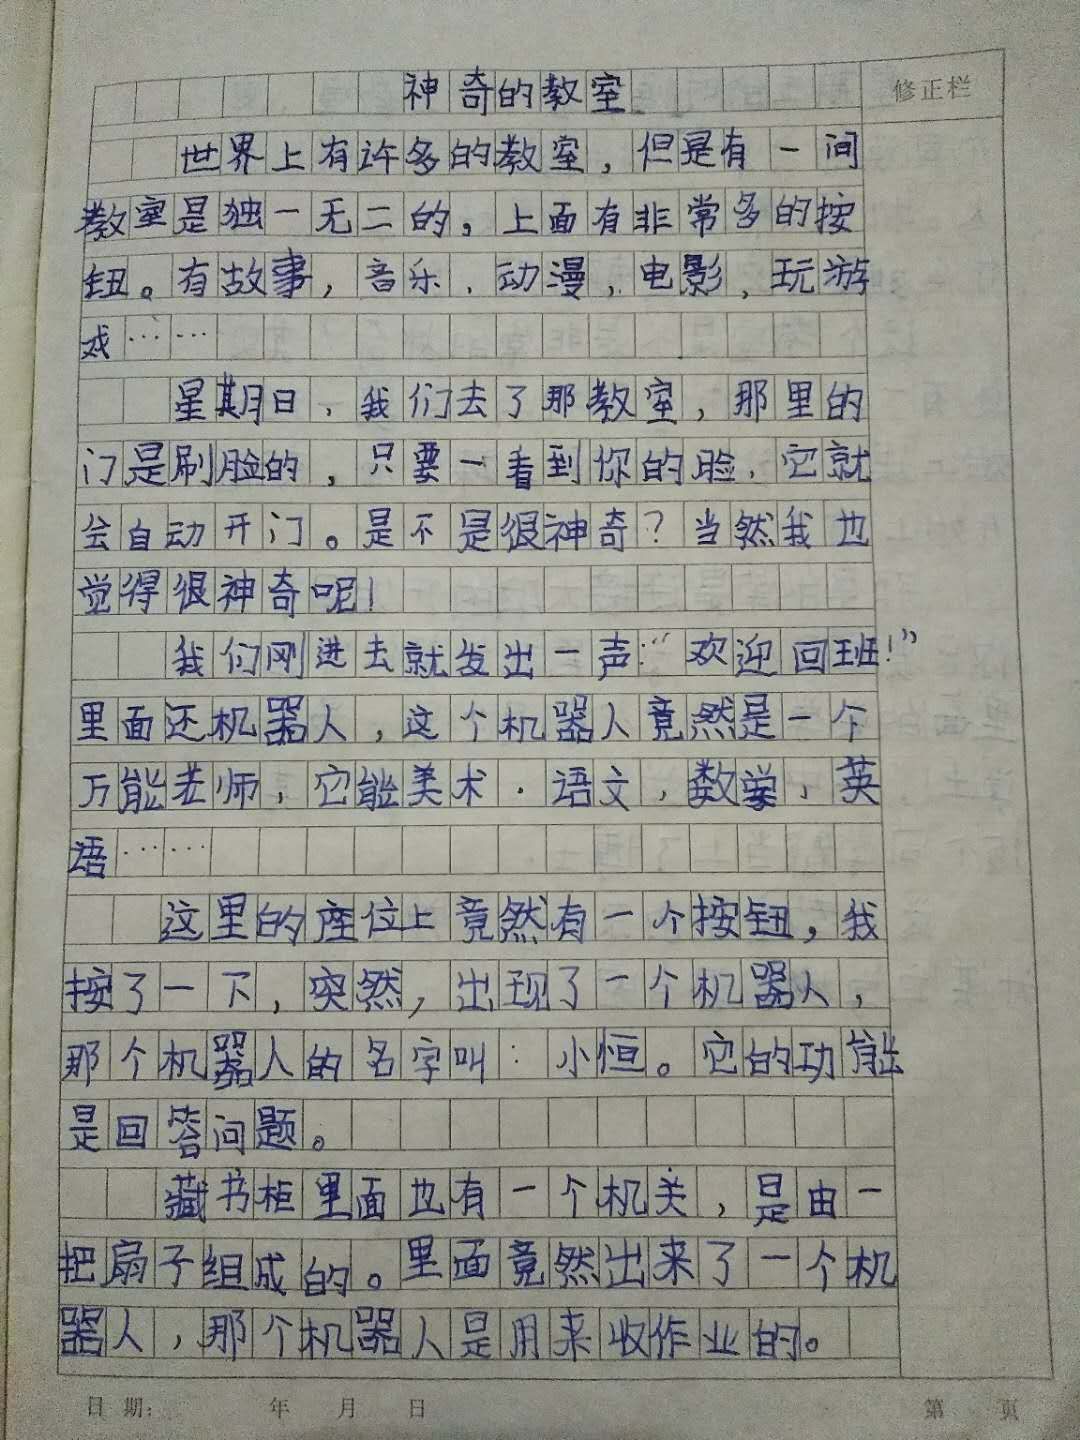 神奇的教室
修正栏
世界上有许多的教室，但是有一间
教室是独一无二的，上面有非常多的按
钮。有故事，音乐、动漫，电影、玩游
戏……
星期日，我们去了那教室，那里的
门是刷脸的，只要一看到你的脸，它就
会自动开门。是不是很神奇？当然我也
觉得很神奇呢！
我们刚进去就发出一声：“欢迎回班！”
里面还机器人，这个机器人竟然是一个
万能老师，它能美术．语文，数学，英
语……
这里的座位上竟然有一个按钮，我
按了一下，突然，出现了一个机器人，
那个机器人的名字叫：小恒。它的功能
是回答问题。
藏书柜里面也有一个机关，是由一
把扇子组成的。里面竟然出来了一个机
器人，那个机器人是用来收作业的。
日期： 年 月 日
第 页